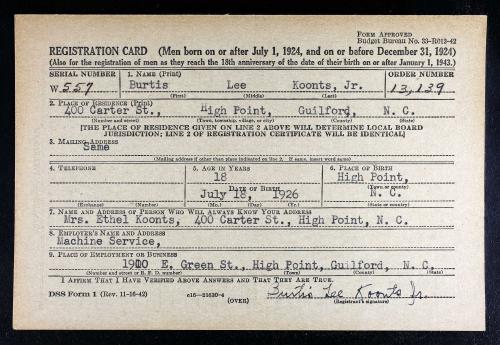 FORM APPROVED
Budget Bureau No. 33-R012-42
REGISTRATION CARD (Men born on or after July 1, 1924, and on or before December 31, 1924)
(Also for the registration of men as they reach the 18th anniversary of the date of their birth on or after January 1, 1943.)
SERIAL NUMBER 1. NAME (Print) ORDER NUMBER
W 557 Burtis Lee Koonts, Jr. 13,139
(First) (Middle) (Last)
2. PLACE OF RESIDENCE (Print)
400 Carter St., High Point, Guilford, N. C.
(Number and street) (Town, township, village, or city) (County) (State)
[THE PLACE OF RESIDENCE GIVEN ON LINE 2 ABOVE WILL DETERMINE LOCAL BOARD
JURISDICTION; LINE 2 OF REGISTRATION CERTIFICATE WILL BE IDENTICAL]
3. MAILING ADDRESS
Same
(Mailing address if other than place indicated on line 2. If same, insert word same)
4. TELEPHONE 5. AGE IN YEARS 6. PLACE OF BIRTH
18 High Point,
DATE OF BIRTH (Town or county)
July 18, 1926 N. C.
(Exchange) (Number) (Mo.) (Day) (Yr.) (State or country)
7. NAME AND ADDRESS OF PERSON WHO WILL ALWAYS KNOW YOUR ADDRESS
Mrs. Ethel Koonts, 400 Carter St., High Point, N. C.
8. EMPLOYER'S NAME AND ADDRESS
Machine Service,
9. PLACE OF EMPLOYMENT OR BUSINESS
1900 E. Green St., High Point, Guilford, N. C.
(Number and street or R. F. D. number) (Town) (County) (State)
I AFFIRM THAT I HAVE VERIFIED ABOVE ANSWERS AND THAT THEY ARE TRUE.
DSS Form 1 (Rev. 11-16-42) c16-21630-4 Burtis Lee Koonts Jr.
(OVER) (Registrant's signature)